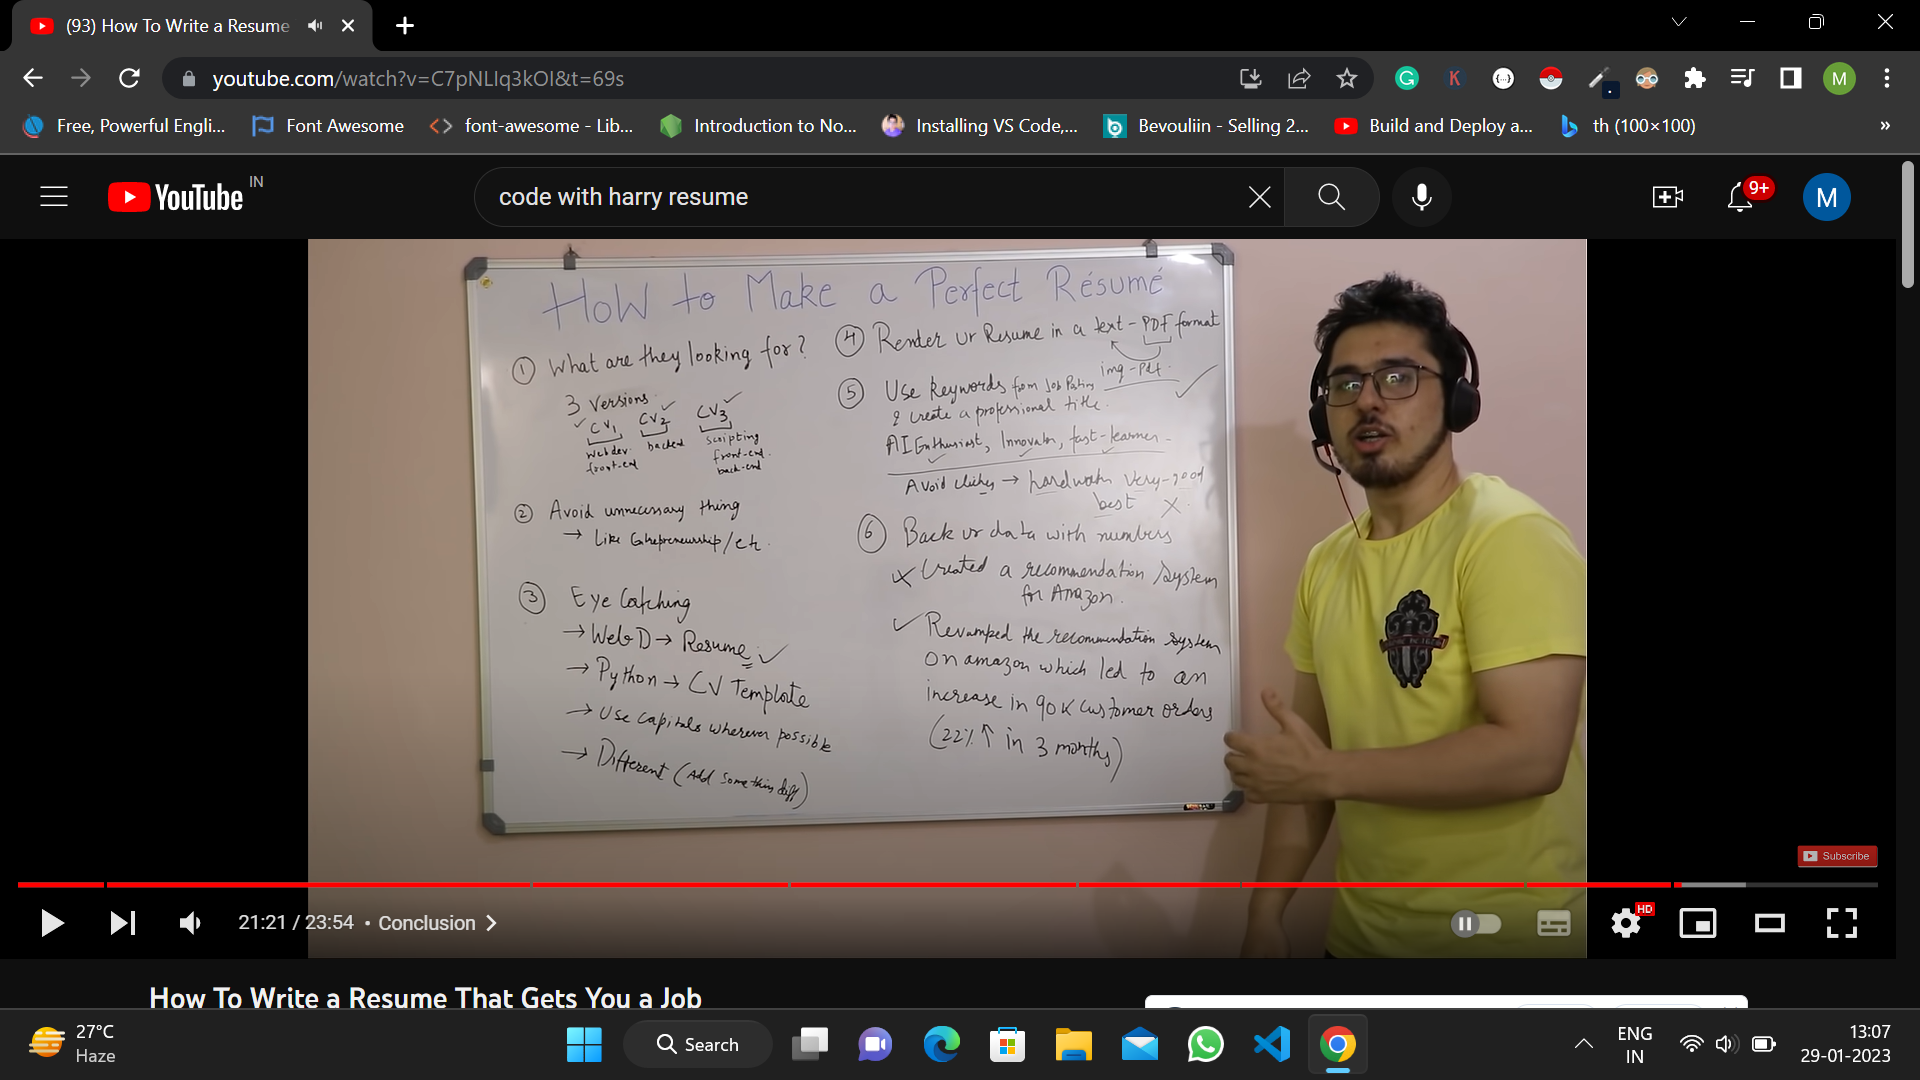 (93) How To Write a Resume
youtube.com/watch?v=C7pNLIq3kOI&t=69s
G
K
M
Free, Powerful Engli...
Font Awesome
font-awesome - Lib...
Introduction to No...
Installing VS Code,...
Bevouliin - Selling 2...
Build and Deploy a...
th (100×100)
»
YouTube IN
code with harry resume
9+
M
HoW to Make a Perfect Résumé
① What are they looking for?
3 Versions
CV1 CV2 CV3
Webdev
front-end
backed
scripting
front-end
back-end
② Avoid unnecessary thing
→ Like Entrepreneurship/etc.
③ Eye Catching
→ Web D → Resume ✓
→ Python → CV Template
→ Use capitals wherever possible
→ Different (Add something diff)
④ Render ur Resume in a text-PDF format
img-Pdf
⑤ Use keywords from Job
& create a professional title.
AI Enthusiast, Innovator, fast-learner
Avoid cliches → very-good
best X
⑥ Back ur data with numbers
X Created a recommendation system
for Amazon.
✓ Revamped the recommendation system
on amazon which led to an
increase in 90K customer orders
(22% ↑ in 3 months)
Subscribe
21:21 / 23:54 • Conclusion
HD
How To Write a Resume That Gets You a Job
27°C
Haze
Search
ENG
IN
13:07
29-01-2023